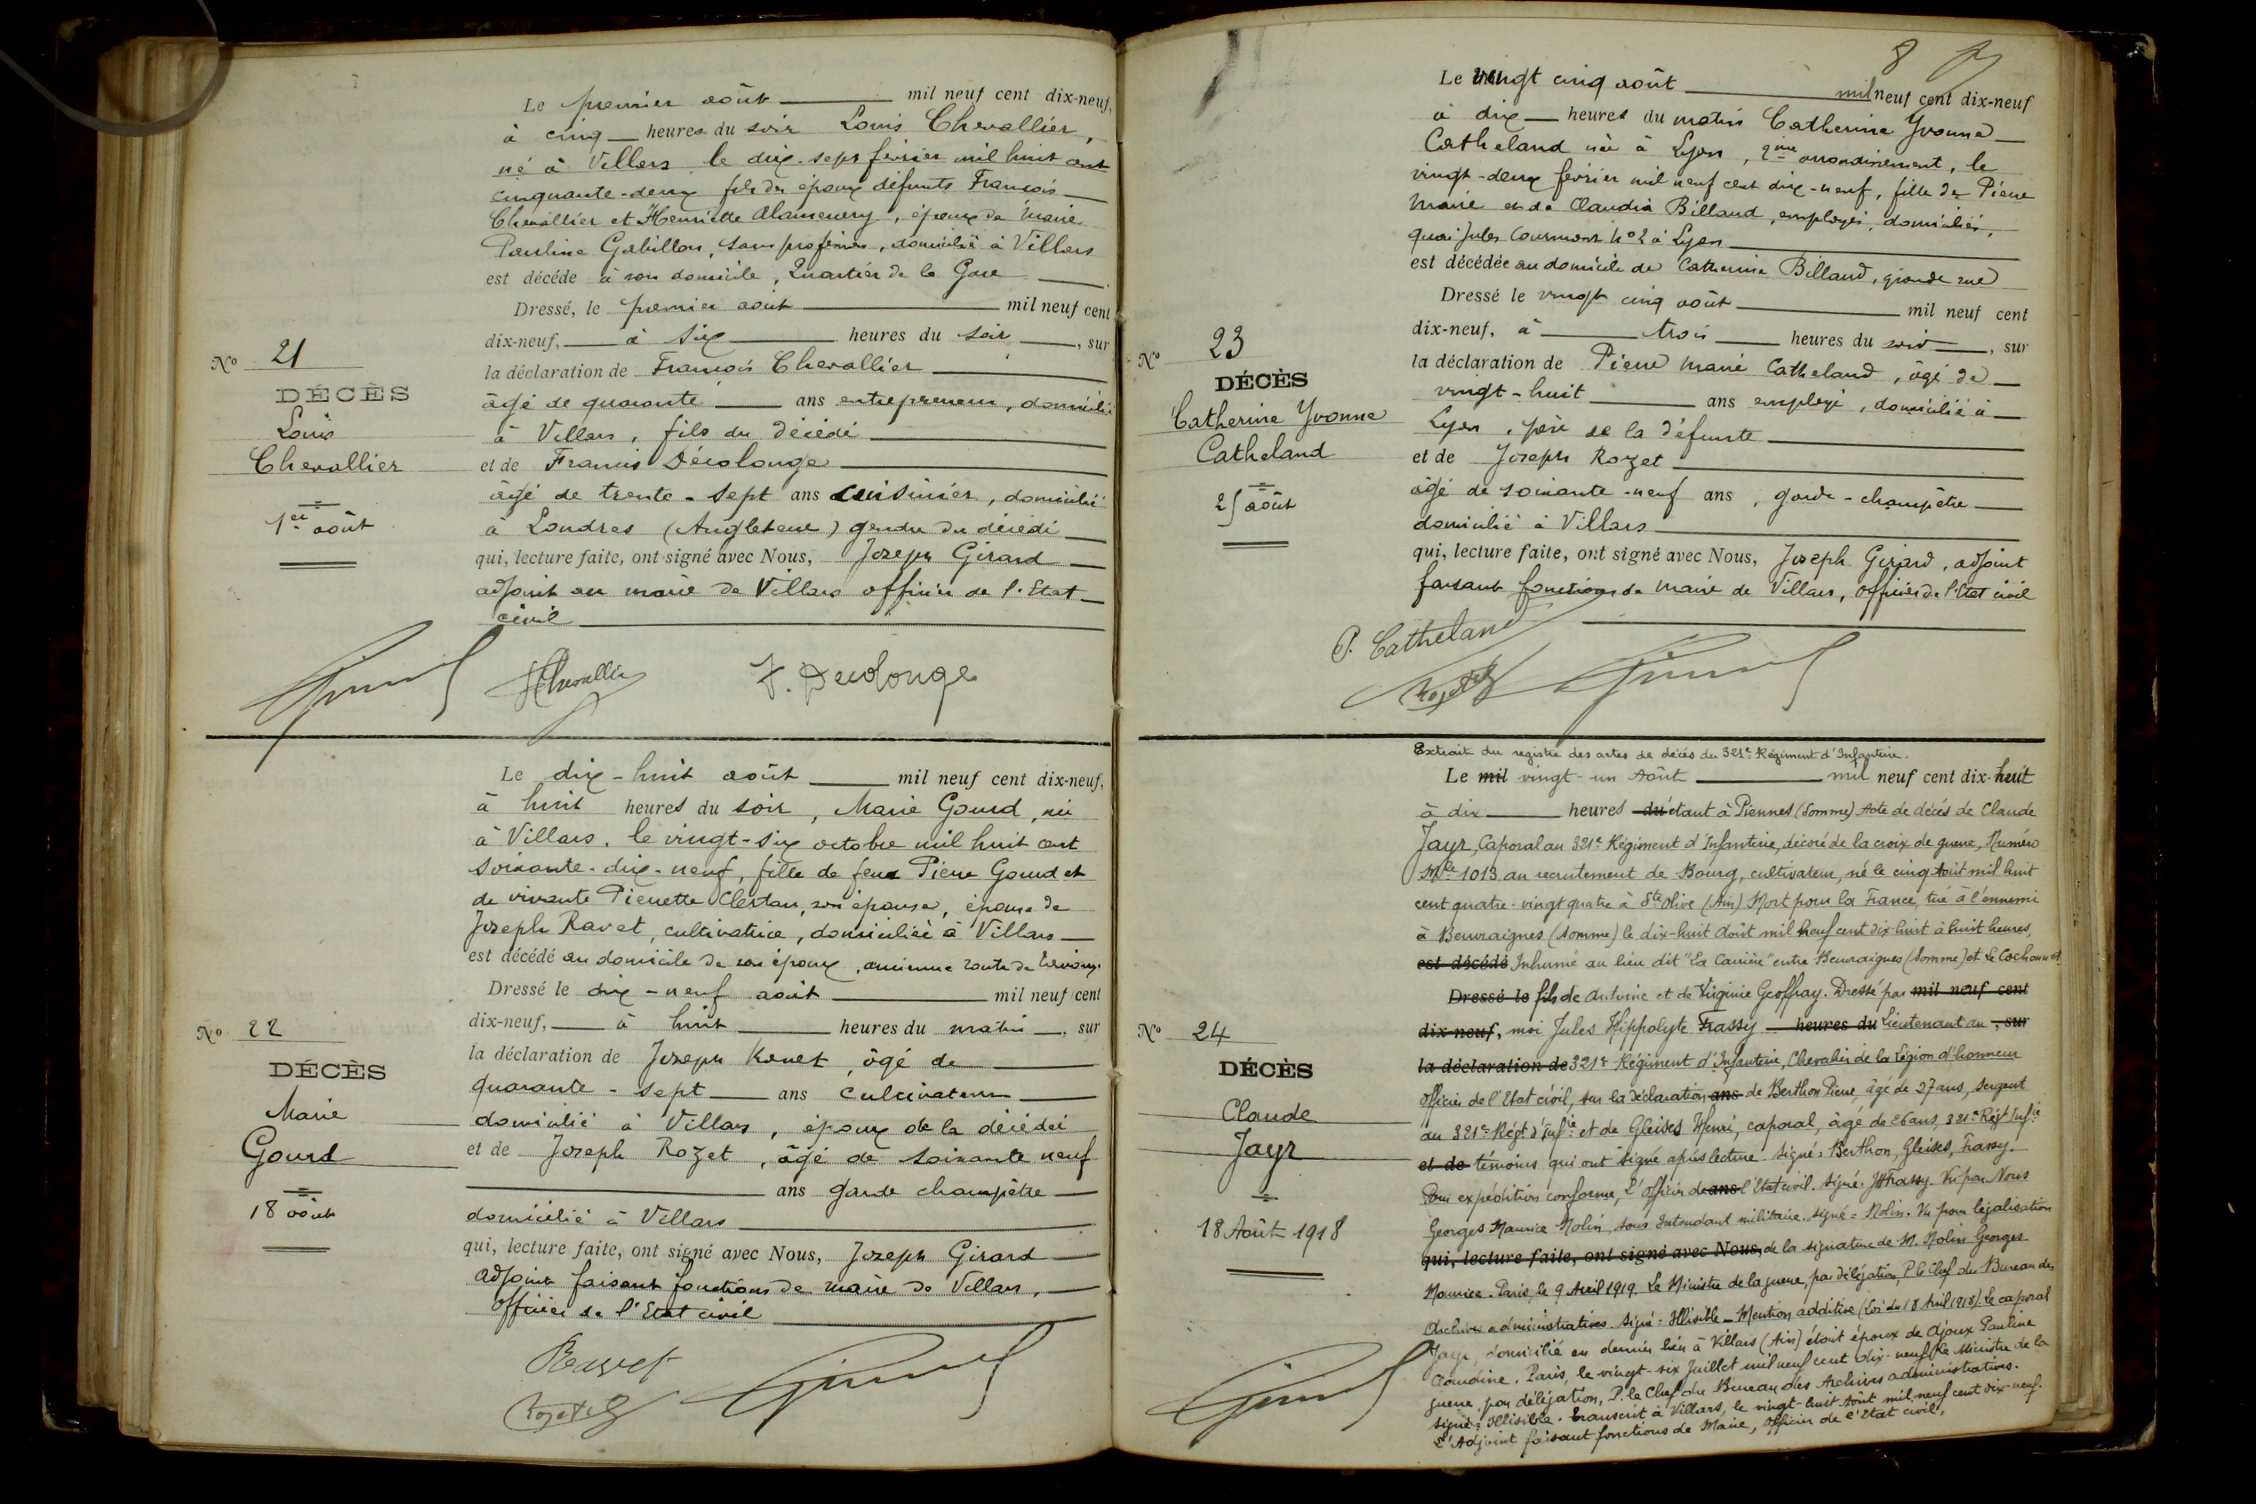 Le premier août mil neuf cent dix-neuf,
à cinq heures du soir Louis Chevallier,
né à Villars le dix-sept février mil huit cent
cinquante-deux fils des époux défunts François
Chevallier et Henriette Alamenery, époux de Marie
Pauline Gabillon, sans profession, domicilié à Villars
est décédé à son domicile, Quartier de la Gare
Dressé, le premier août mil neuf cent
dix-neuf, à six heures du soir, sur
la déclaration de François Chevallier
âgé de quarante ans entrepreneur, domicilié
à Villars, fils du décédé
et de Francis Décolonge
âgé de trente-sept ans cuisinier, domicilié
à Londres (Angleterre) gendre du décédé
qui, lecture faite, ont signé avec Nous, Joseph Girard
adjoint au maire de Villars officier de l'Etat
civil
No 21
DÉCÈS
Louis
Chevallier
1er août
Chevallier
F. Decolonge
Le dix-huit août mil neuf cent dix-neuf,
à huit heures du soir, Marie Gourd, née
à Villars, le vingt-six octobre mil huit cent
soixante-dix-neuf, fille de feu Pierre Gourd et
de vivante Pierrette Clertan, son épouse, épouse de
Joseph Ravet, cultivatrice, domiciliée à Villars
est décédé au domicile de son époux, ancienne route de
Dressé le dix-neuf août mil neuf cent
dix-neuf, à huit heures du matin, sur
la déclaration de Joseph Ravet, âgé de
quarante-sept ans cultivateur
domicilié à Villars, époux de la décédée
et de Joseph Rozet, âgé de soixante neuf
ans garde champêtre
domicilié à Villars
qui, lecture faite, ont signé avec Nous, Joseph Girard
adjoint faisant fonctions de maire de Villars,
officier de l'Etat civil
No 22
DÉCÈS
Marie
Gourd
18 août
Ravet
Rozet
8
Le vingt cinq août mil neuf cent dix-neuf
à dix heures du matin Catherine Yvonne
Catheland née à Lyon, 2me arrondissement, le
vingt-deux février mil neuf cent dix-neuf, fille de Pierre
Marie et de Claudia Billand, employés, domiciliés,
quai Jules Courmont No 2 à Lyon
est décédée au domicile de Catherine Billand, grande rue
Dressé le vingt cinq août mil neuf cent
dix-neuf, à trois heures du soir, sur
la déclaration de Pierre Marie Catheland, âgé de
vingt-huit ans employé, domicilié à
Lyon, père de la défunte
et de Joseph Rozet
âgé de soixante-neuf ans, garde-champêtre
domicilié à Villars
qui, lecture faite, ont signé avec Nous, Joseph Girard, adjoint
faisant fonctions de maire de Villars, officier de l'Etat civil
No 23
DÉCÈS
Catherine Yvonne
Catheland
25 août
P. Catheland
Rozet
Extrait du registre des actes de décès du 321e Régiment d'Infanterie.
Le mil vingt-un Août mil neuf cent dix-huit
à dix heures du étant à Piennes (Somme) Acte de décès de Claude
Jayr, Caporal au 321e Régiment d'Infanterie, décoré de la croix de guerre, Numéro
Mle 1013 au recrutement de Bourg, cultivateur, né le cinq Août mil huit
cent quatre-vingt quatre à Ste Olive (Ain) Mort pour la France, tué à l'ennemi
à Beuvraignes (Somme) le dix-huit Août mil neuf cent dix-huit à huit heures,
est décédé Inhumé au lieu dit "La Carrière" entre Beuvraignes (Somme) et Le Cochonnet.
Dressé le fils de Antoine et de Virginie Geoffray. Dressé par mil neuf cent
dix-neuf, moi Jules Hippolyte Frassy heures du Lieutenant au , sur
la déclaration de 321e Régiment d'Infanterie, Chevalier de la Légion d'honneur
Officier de l'Etat civil, sur la déclaration ans de Berthon Pierre, âgé de 27 ans, sergent
au 321e Régt d'Infie et de Gleises Henri, caporal, âgé de 26 ans, 321e Régt Infie
et de témoins qui ont signé après lecture. Signé: Berthon, Gleises, Frassy.
Pour expédition conforme, L'Officier de ans l'Etat civil. Signé: JHFrassy. Vu par Nous
Georges Maurice Molin, sous Intendant militaire. Signé = Molin. Vu pour légalisation
qui, lecture faite, ont signé avec Nous, de la signature de M. Molin Georges
Maurice. Paris, le 9 Avril 1919. Le Ministre de la guerre, par délégation, P. le Chef du Bureau des
Archives administratives. Signé = Illisible _ Mention additive (Loi du 18 Avril 1918). Le caporal
Jayr, domicilié en dernier lieu à Villars (Ain) était époux de Ajoux Pauline
Claudine. Paris, le vingt-six Juillet mil neuf cent dix-neuf. Le Ministre de la
guerre, par délégation, P. le Chef du Bureau des Archives administratives.
Signé = Illisible. Transcrit à Villars, le vingt-huit Août mil neuf cent dix-neuf.
L'Adjoint faisant fonctions de Maire, Officier de l'Etat civil,
No 24
DÉCÈS
Claude
Jayr
18 Août 1918